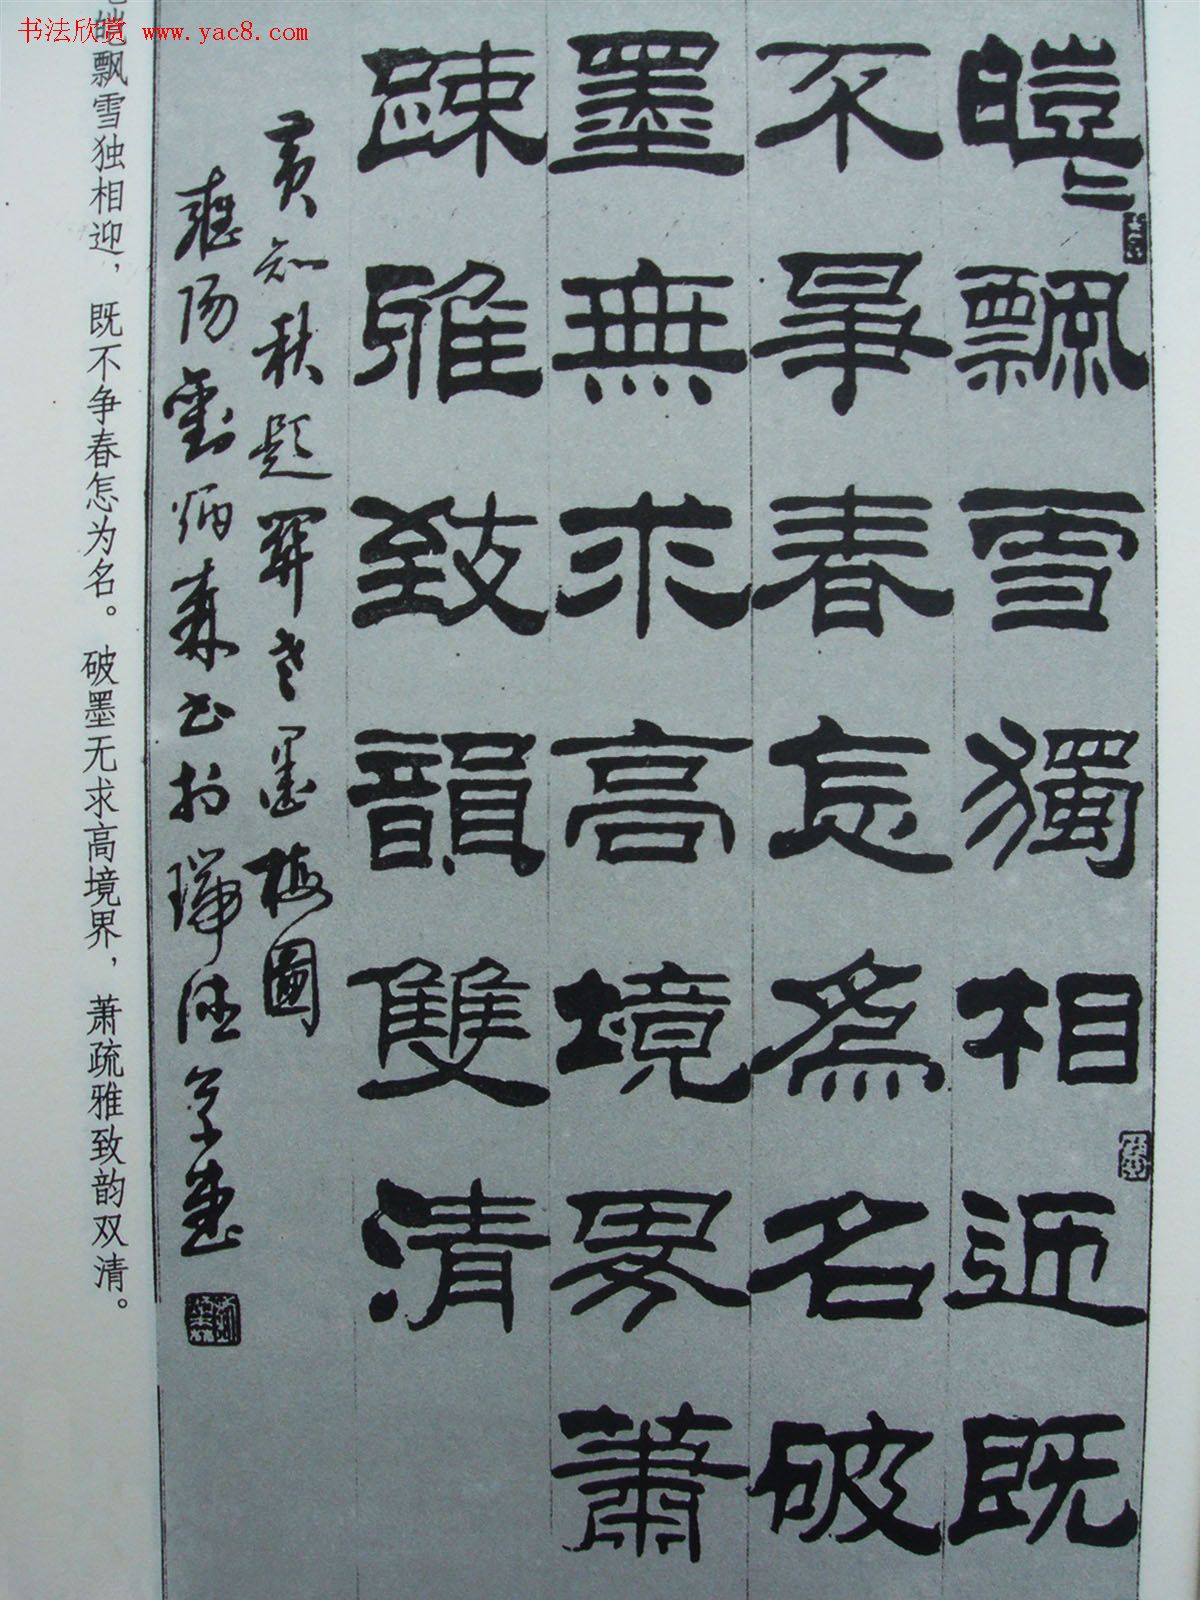 书法欣赏 www.yac8.com
皚〻飄雪獨相迎既
不爭春怎為名破
墨無求高境界蕭
踈雅致韻雙清
黄知秋题關老墨梅圖
劉炳森书於
皑飘雪独相迎，既不争春怎为名。破墨无求高境界，萧疏雅致韵双清。